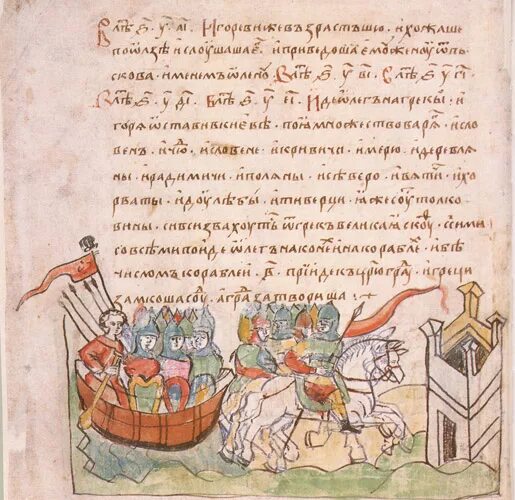 В лѣт҃ ҂ѕ҃ у҃ а҃і Игореви же възрастъшю и хожаше
по Олзѣ и слоушаша его и приведоша емоу женоу ѿ Пь
скова именемъ Олено В лѣт҃ ҂ѕ҃ у҃ в҃і В лѣт҃ ҂ѕ҃ у҃ г҃і
В лѣт҃ ҂ѕ҃ у҃ д҃і В лѣт҃ ҂ѕ҃ у҃ е҃і Иде Олегъ на Грекы и
горя ѡстави в Киевѣ поя множество варягъ и сло
венъ и чюдь и словене и кривичи и мерю и деревля
ны и радимичи и поляны и сѣверо и вятичи и хо
рваты и доулѣбы и тиверци яже соуть толко
вины си вси звахоуть ѿ грекъ великая скоуфь с сими
со всѣми поиде Олегъ на конехъ и на кораблехъ и бѣ
числомъ кораблеи в҃ прииде къ Ц҃рюградоу и греци
замкоша Соудъ а градъ затвориша